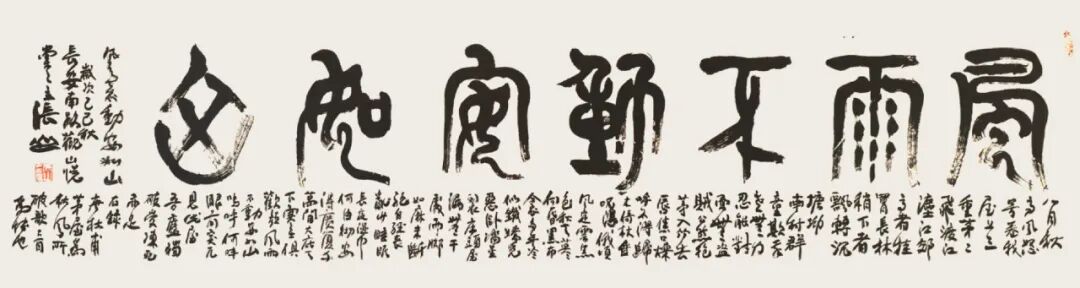 風雨不動安如山
八月秋
高風怒
号卷我
屋上三
重茅
飛渡江
灑江郊
高者挂
罥長林
梢下者
飄轉沉
塘坳
南村群
童欺我
老無力
忍能對
面為盜
賊公然抱
茅入竹去
唇焦口燥
呼不得歸
來倚杖自
嘆息俄頃
風定雲墨
色秋天漠
漠向昏黑
布衾多年冷
似鐵嬌兒
惡卧踏裏
裂床頭屋
漏無干
處雨脚
如麻未斷
絕自經喪
亂少睡眠
長夜沾濕
何由徹安
得廣廈千
萬間大庇天
下寒士俱
歡顏風雨
不動安如山
嗚呼何時
眼前突兀
見此屋
吾廬獨
破受凍死
亦足
茅屋為
秋風所
破歌
風雨不動安如山
長安南路觀山